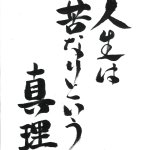 人生は
苦なりという
真理